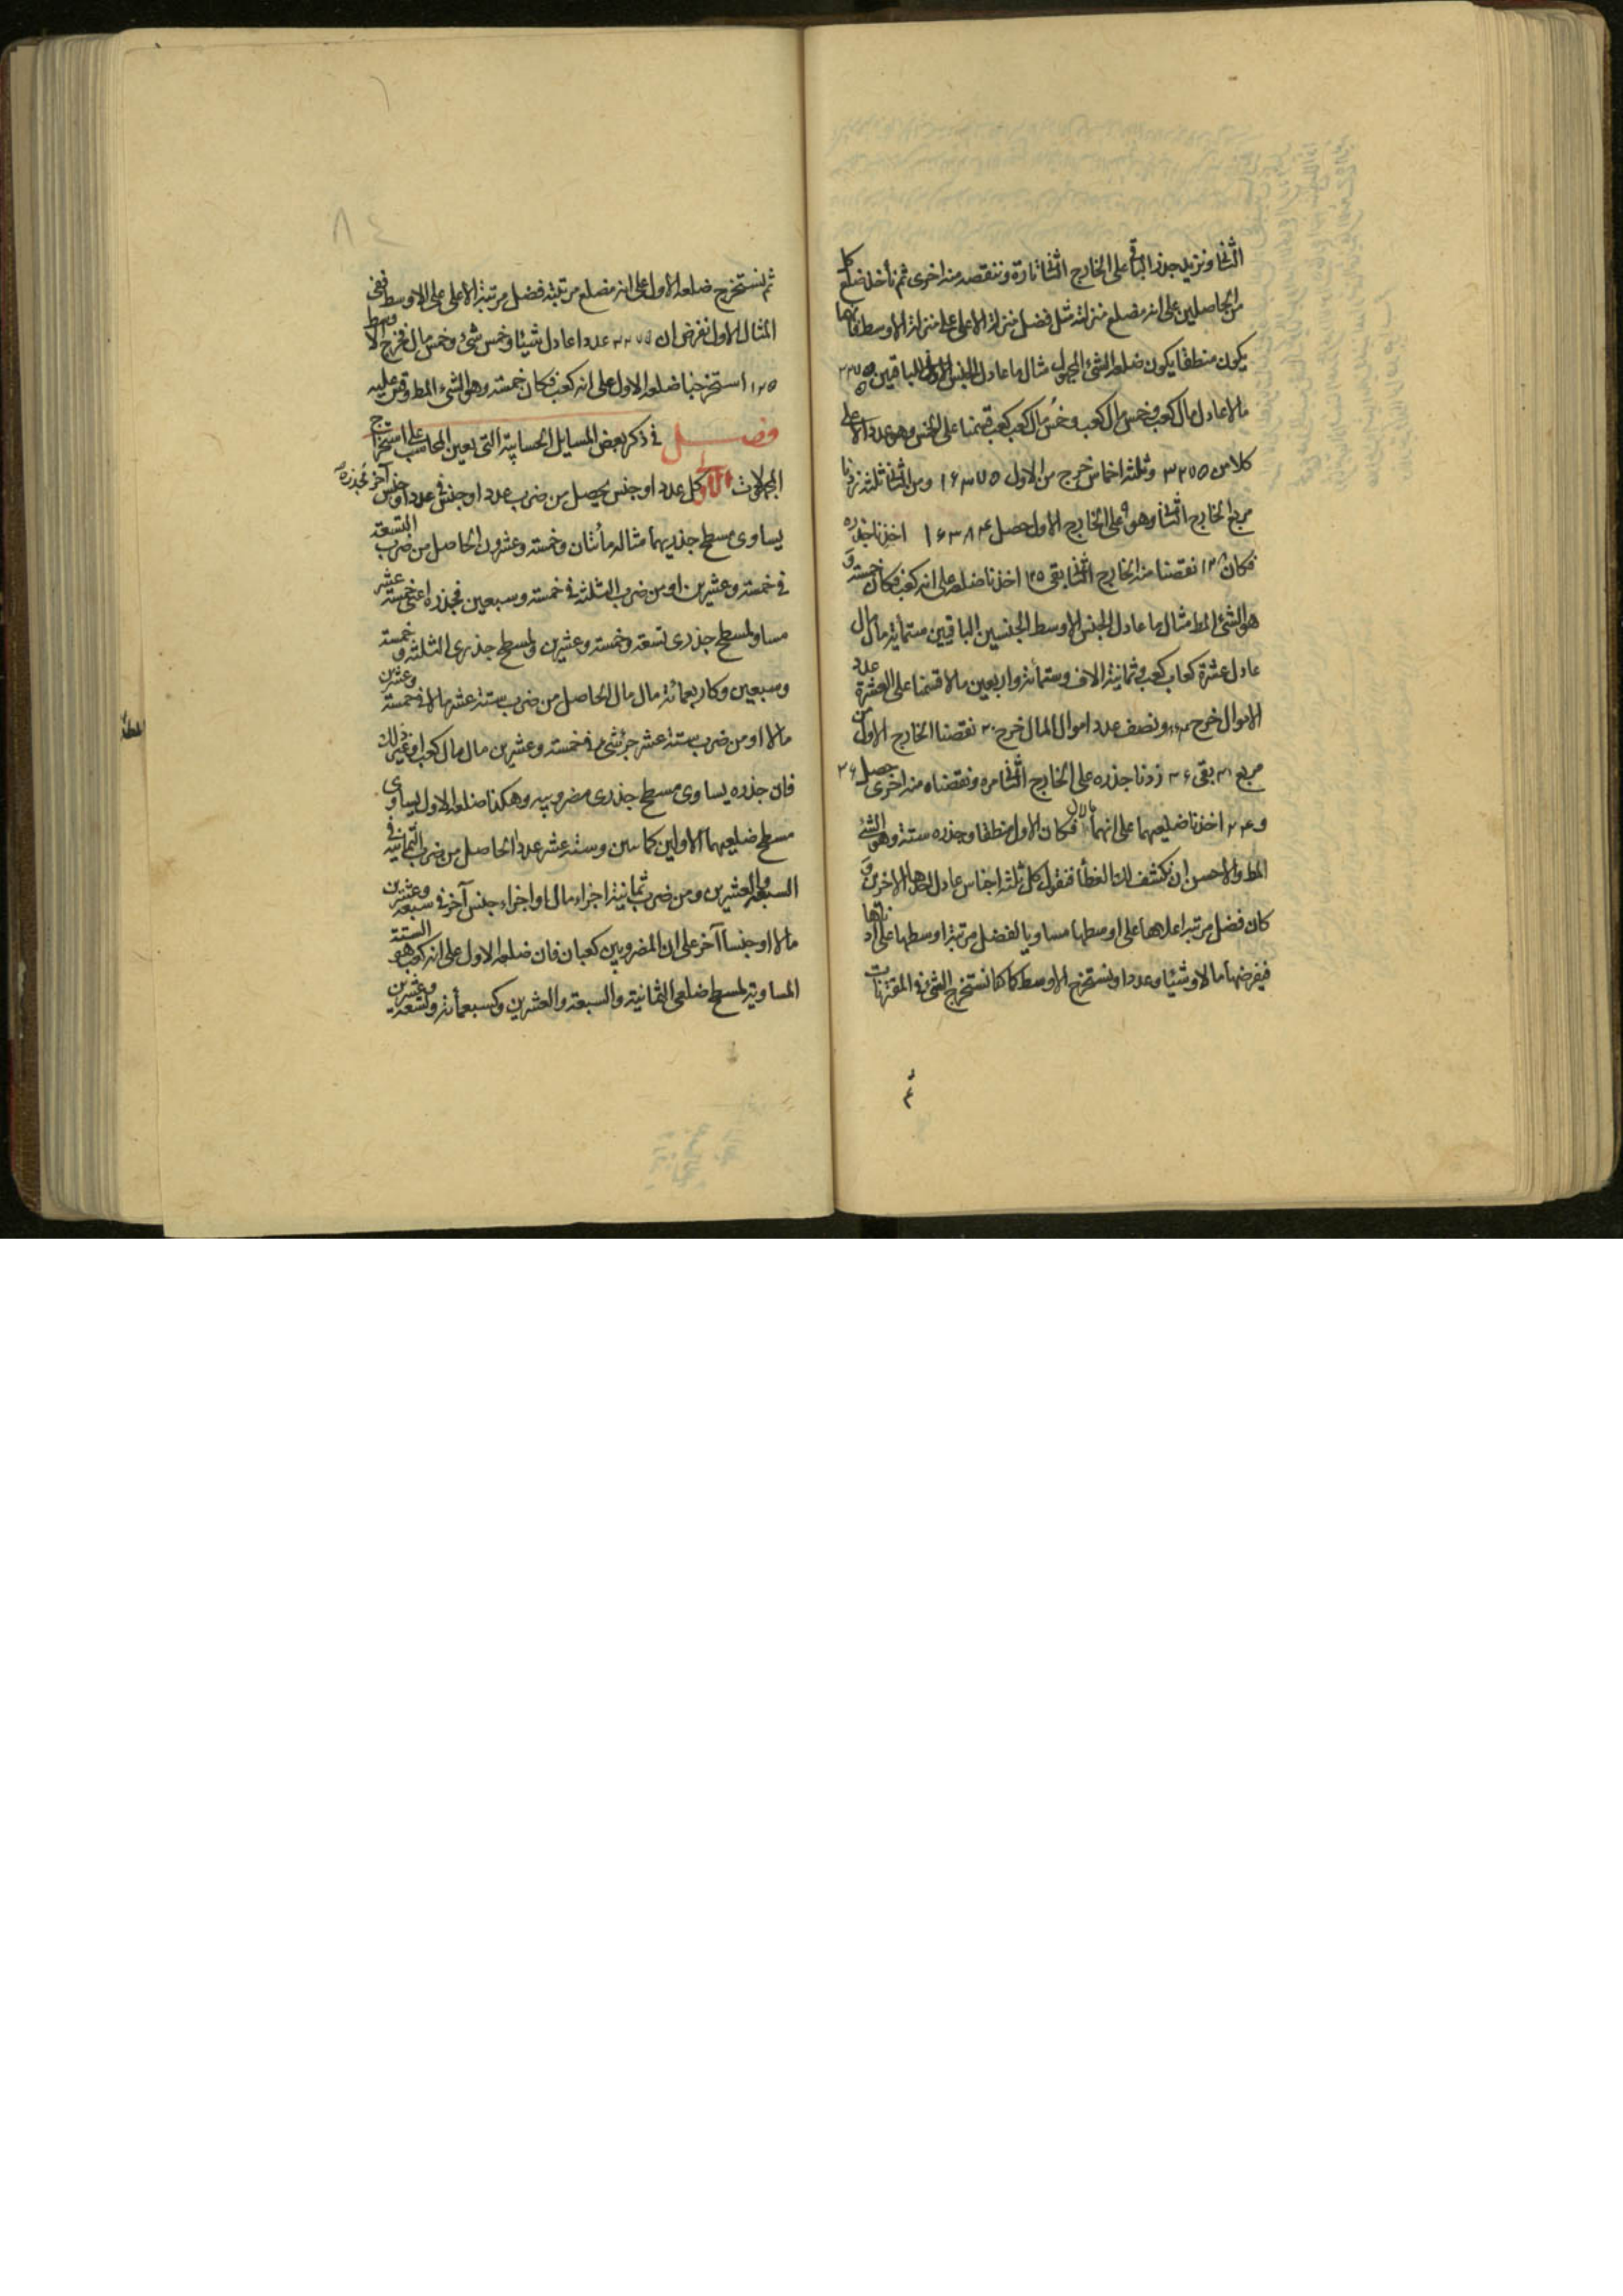 الثانى ونزيد جذر الباقى على الخارج الثانى تارة وننقصه منه اخرى ثم نأخذ ضلع كل
من الحاصلين على انه مضلع منزلته مثل فضل منزلة الاعلى على منزلة الاوسط فايهما
يكون منطقا يكون ضلعه الشئ المجهول مثال ما عادل الجنس الباقيين ٣٢٧٥
مالا عادل مال كعب وخمس مال كعب وخمس مال كعب كعب قسمنا على الخمس وهو عدد الاعلى
كلا من ٣٢٧٥ وثلثة اخماس خرج من الاول ١٦٣٧٥ ومن الثانى ثلثة زدنا
مربع الخارج الثانى وهو ٩ على الخارج الاول حصل ١٦٣٨٤ اخذنا جذره
فكان ١٢٨ نقصنا منه الخارج الثانى بقى ١٢٥ اخذنا ضلعه على انه كعب فكان خمسة و
هو الشئ المط مثال ما عادل الجنس الاوسط الجنسين الباقيين ستمأية مال مال
عادل عشرة كعاب كعب وثمانية الاف وستمأئة واربعين مالا قسمنا على العشرة عدد
الاموال خرج ونصف عدد اموال المال خرج ٣٠ نقصنا الخارج الاول من
مربع ٣٠ بقى ٣٦ زدنا جذره على الخارج الثانى مرة ونقصناه منه اخرى حصل ٣٦
و ٢٤ اخذنا ضليعهما على انهما مالان فكان الاول منطقا وجذره ستة وهو الشئ
المط والاحسن ان نكشف لك الغطأ فنقول كل ثلثة اجناس عادل احدها الاخرين و
كان فضل مرتبة اعلاها على اوسطها مساويا لفضل مرتبة اوسطها على ادناها
فيفرضها مالا وشيئا وعددا ونستخرج الاوسط كما كنا نستخرج الشئ فى المقترنات
ثم
ثم نستخرج ضلعه الاول على انه مضلع مرتبته فضل مرتبة الاعلى على الاوسط ففى
المثال الاول نفرض ان ٣٢٧٥ عددا عادل شيئا وخمس شئ وخمس مال فخرج الاوسط
١٢٥ استخرجنا ضلعه الاول على انه كعب فكان خمسة وهو الشئ المط وقس عليه
فصل فى ذكر بعض المسايل الحسابية التى يعين المحاسب على استخراج
المجهولات الاول كل عدد او جنس يحصل من ضرب عدد او جنس فى عدد او جنس آخر فجذره
يساوى مسطح جذريهما مثاله مأئتان وخمسة وعشرون الحاصل من ضرب التسعة
فى خمسة وعشرين او من ضرب الثلثة فى خمسة وسبعين فجذره اعنى خمسة عشر
مساو لمسطح جذرى تسعة وخمسة وعشرين ولمسطح جذرى الثلثة و خمسة
وسبعين وكاربعمائة مال مال الحاصل من ضرب ستة عشر مالا فى خمسة وعشرين
مالا او من ضرب ستة عشر جزء شئ فى خمسة وعشرين مال مال كعب او غير ذلك
فان جذره يساوى مسطح جذرى مضروبيه وهكذا ضلعه الاول يساوى
مسطح ضليعهما الاولين كمائتين وستة عشر عددا الحاصل من ضرب الثمانية فى
السبعة والعشرين ومن ضرب ثمانية اجزاء مال او اجزاء جنس آخر فى سبعة وعشرين
مالا او جنسا آخر على ان المضروبين كعبان فان ضلعه الاول على انه كعب هو الستة
المساوية لمسطح ضلعى الثمانية والسبعة والعشرين وكسبعمأئة وتسعة وعشرين